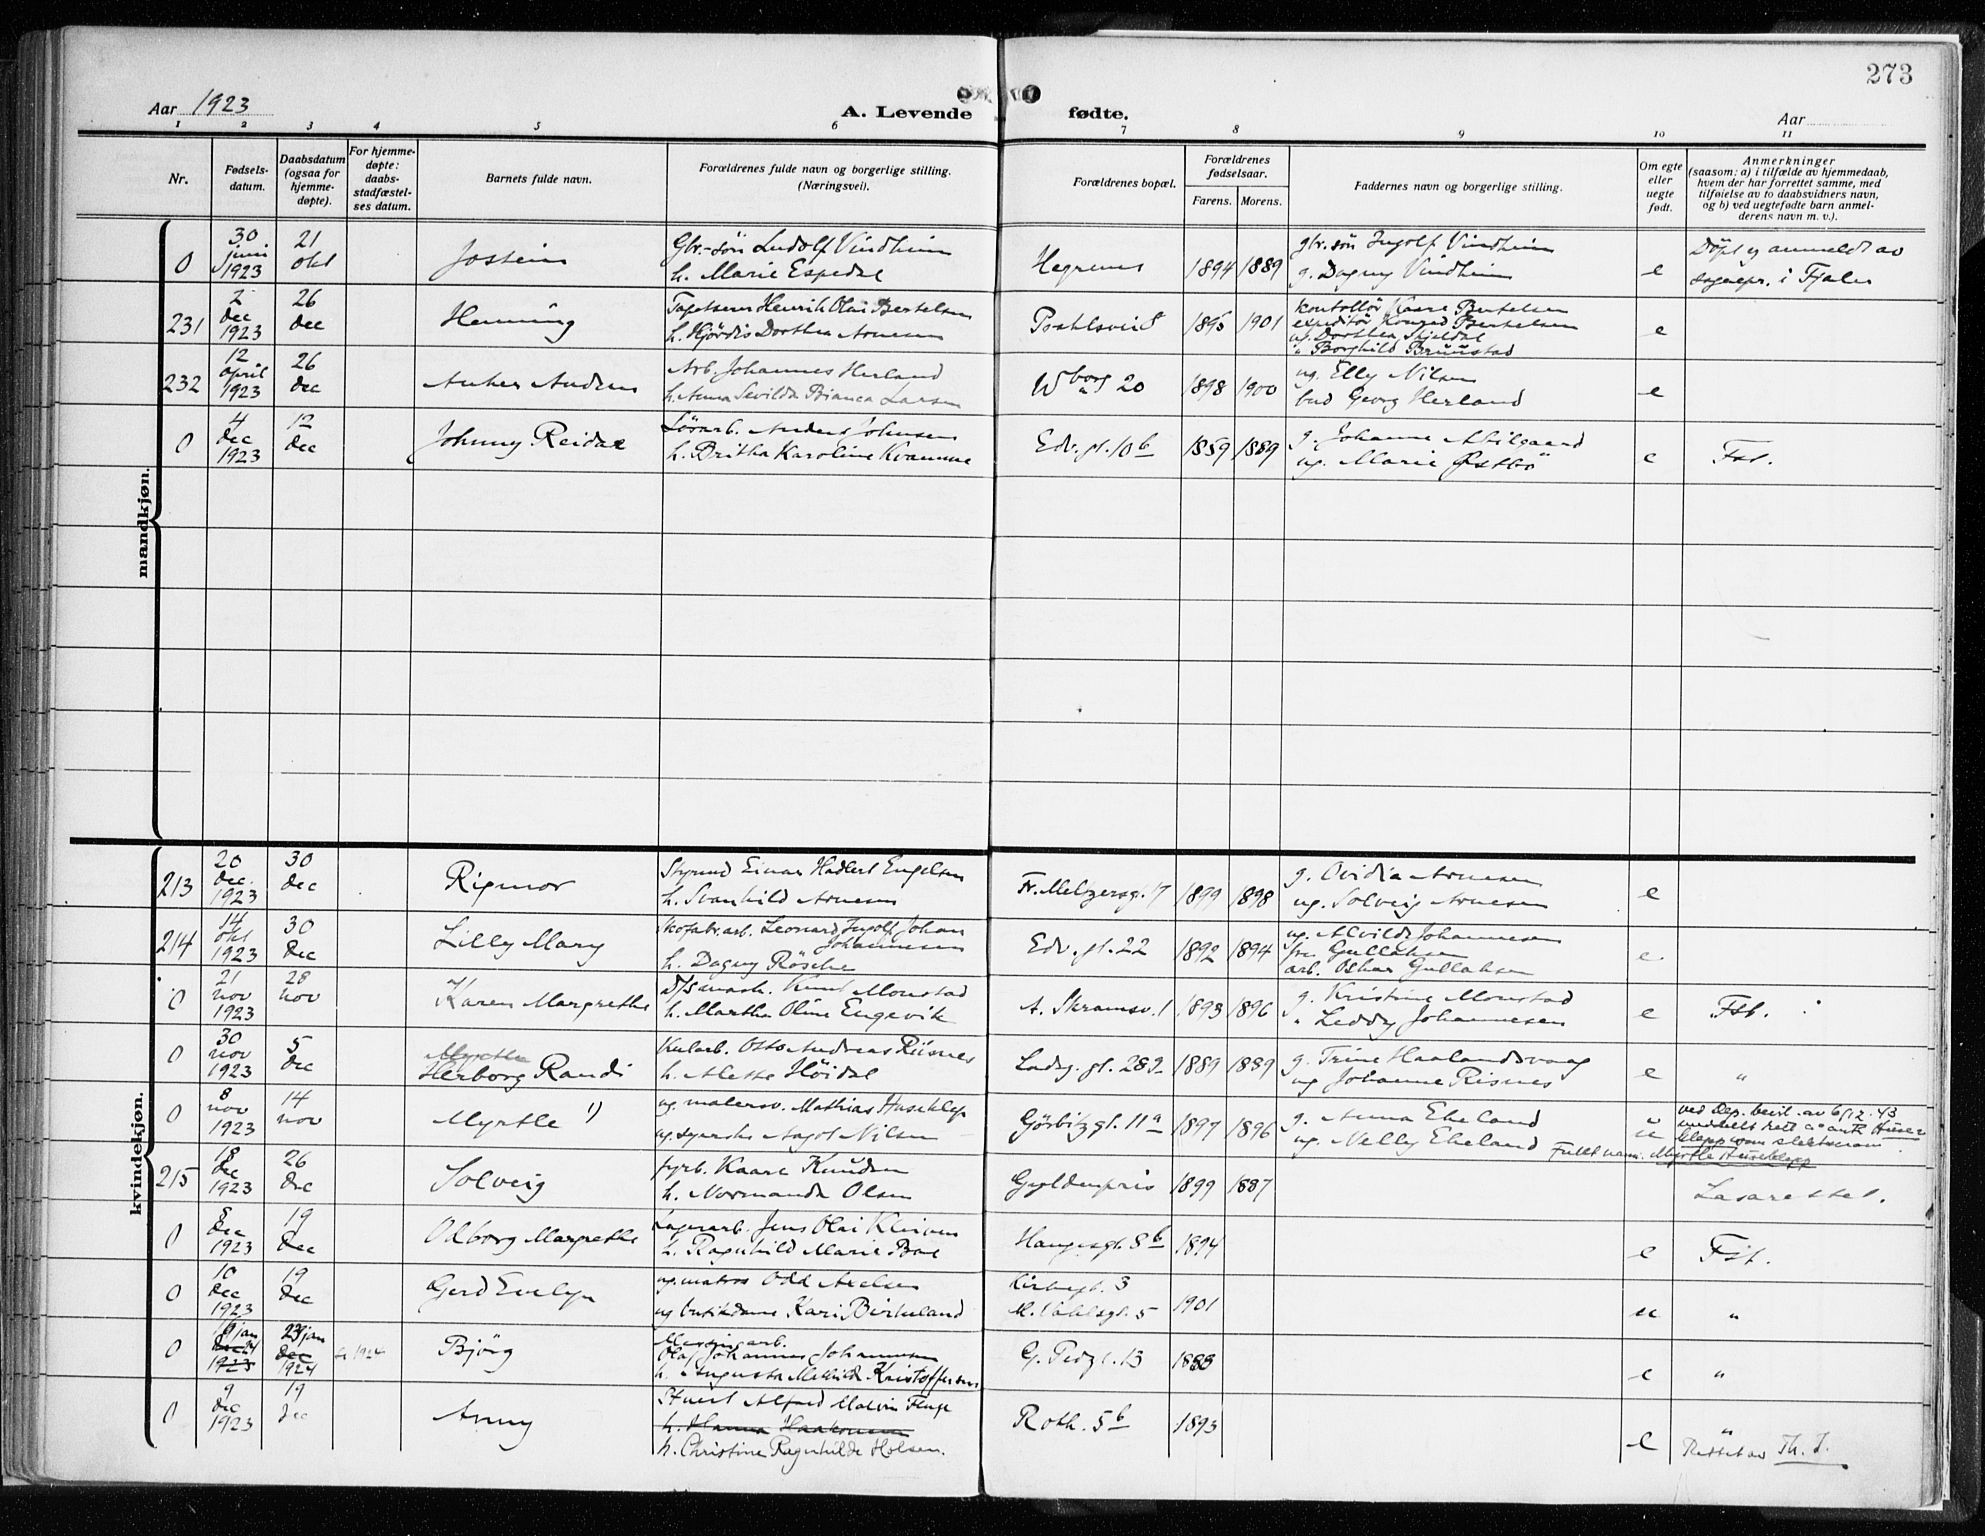 273
Aar 1923
A. Levende fødte.
Aar
1 2 3 4 5 6 7 8 9 10 11
Nr.
Fødsels-
datum.
Daabsdatum
(ogsaa for
hjemme-
døpte).
For hjemme-
døpte:
daabs-
stadfæstel-
ses datum.
Barnets fulde navn.
Forældrenes fulde navn og borgerlige stilling.
(Næringsvei).
Forældrenes bopæl.
Forældrenes
fødselsaar.
Farens. Morens.
Faddernes navn og borgerlige stilling.
Om egte
eller
uegte
født.
Anmerkninger
(saasom: a) i tilfælde av hjemmedaab,
hvem der har forrettet samme, med
tilføielse av to daabsvidners navn,
og b) ved uegtefødte barn anmel-
derens navn m. v.).
mandkjøn.
0 30 juni 1923 21 okt Jostein
Gbr.-søn Ludolf Vindheim
h. Marie Espedal
Hegrenes 1894 1889
gbr.søn Ingolf Vindheim
g. Dagny Vindheim
e
Døpt og anmeldt av
sognepr. i Fjaler
231 2 dec 1923 26 dec Henning
Tapetserer Henrik Olai Bertelsen
h. Hjørdis Dorthea Arnesen
1895 1901
kontollør Kaare Bertelsen
expeditør Konrad Bertelsen
ug. Dorthea Skjeldal
" Borghild Bruustad
e
232 12 april 1923 26 dec Anker Andreas
Arb. Johannes Herland
h. Anna Sevilda Bianca Larsen
Wborg 20 1898 1900
ug. Elly Nilsen
bud Georg Herland
e
0 4 dec 1923 12 dec Johnny Reidar
Løsarb. Anders Johnsen
h. Britha Karoline Kvamme
Edv. gt. 10 b 1859 1889
g. Johanne Abilgaard
ug. Marie Østbø
e
Fst.
kvindekjøn.
213 20 dec. 1923 30 dec Rigmor
Styrmd Einar Hadlert Engelsen
h. Svanhild Arnesen
Fr. Meltzersg. 17 1899 1898
g. Ovidia Arnesen
ug. Solveig Arnesen
e
214 14 okt 1923 30 dec Lilly Mary
Skofabr.arb. Leonard Ingolf Johan
Johannessen
h. Dagny Røsche
Edv. gt. 22 1892 1894
ug. Alvilda Johannesen
fru Gullaksen
arb. Oskar Gullaksen
e
0 21 nov 1923 28 nov Karen Margrethe
D/Smask. Knut Monstad
h. Martha Oline Engevik
A. Skramsv. 1 1893 1896
g. Kristine Monstad
" Leddy Johannesen
e
Fst.
0 30 nov 1923 5 dec
Myrthe
Herborg Randi
Kularb. Otto Andreas Risnes
h. Alette Høidal
Ladeg. gt. 289 1889 1889
g. Trine Haalandsvaag
ug Johanne Risnes
e
"
0 8 nov 1923 14 nov Myrtle 1)
ug. malersv. Mathias Huseklep
ug. syerske Aagot Nilsen
Gørbitzgt. 11 a 1897 1896
g. Anna Ekeland
ug. Nelly Ekeland
u
ved Dep. bevil. av 6/12.43
meddelt rett a antk Huse-
klepp som slektsnavn
Fullt navn: Myrtle Huseklepp
215 18 dec 1923 26 dec Solveig
fyrb. Kaare Knudsen
h. Normanda Olsen
Gyldenpris 1899 1887
Lasarettet.
0 8 dec 1923 19 dec Odborg Margrethe
Lagerarb. Jens Olai Kleiven
h. Ragnhild Marie Boe
Haugesgt. 8 b 1894
e
Fst.
0 10 dec 1923 19 dec Gerd Evelyn
ug. matros Odd Axelsen
ug butikdame Kari Birkeland
Kirkegt. 3
M. Vahlsgt. 5
1901
u
"
0 jan dec 24 1923 23 jan dec 1924 1924 Bjørg
Messingarb.
Olaf Johannes Johannesen
h. Augusta Mathilde Kristoffersen
G. 13 1888
e
"
0 9 dec 1923 19 dec Anny
Stuert Alfred Malvin Fluge
h. Hanna Haakonsen
h. Christine Ragnhilde Holsen.
Roth. 5 b 1893
e
"
Rettet av Th. J.